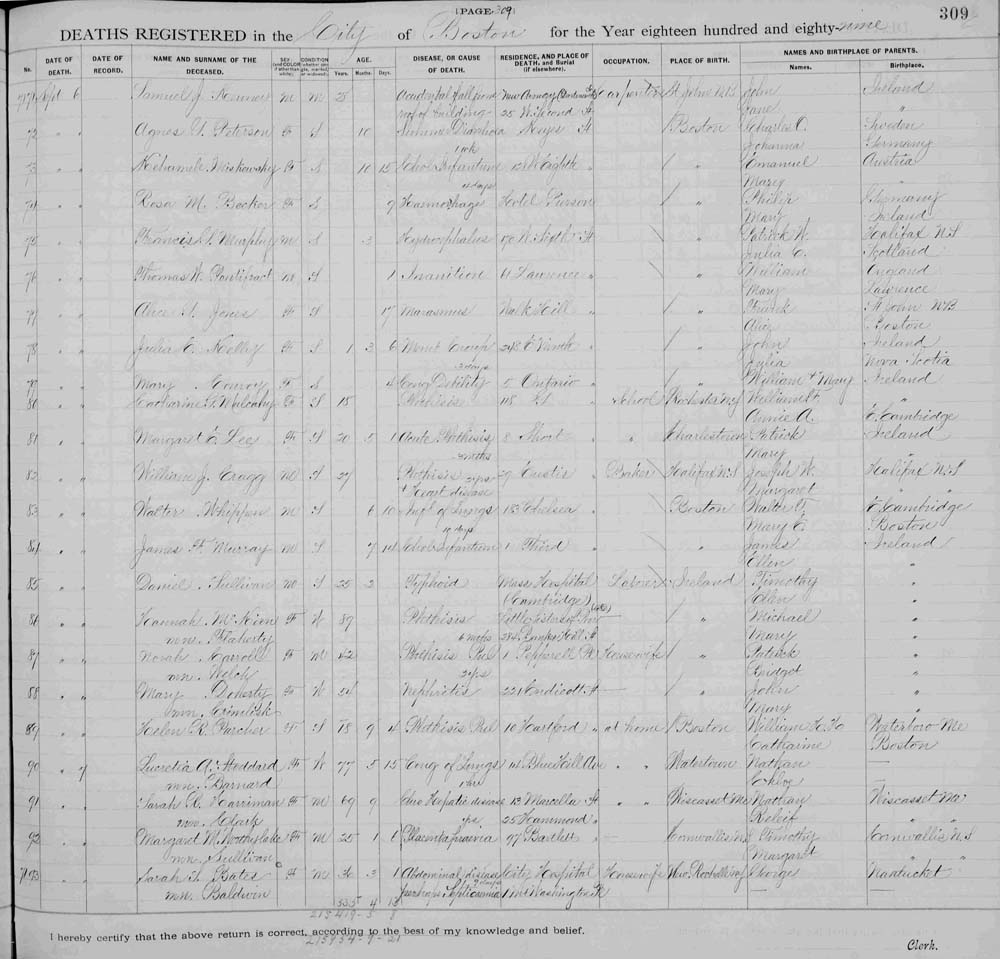 (PAGE 309)
309
DEATHS REGISTERED in the City of Boston for the Year eighteen hundred and eighty-nine
No. DATE OF DEATH. DATE OF RECORD. NAME AND SURNAME OF THE DECEASED. SEX CONDITION AGE. Years. Months. Days. DISEASE, OR CAUSE OF DEATH. RESIDENCE, AND PLACE OF DEATH, and Burial (if elsewhere). OCCUPATION. PLACE OF BIRTH. NAMES AND BIRTHPLACE OF PARENTS. Names. Birthplace.
Sept 6 Samuel J. M M 25 Accidental fall from St Johns N.B. John Ireland
roof of building 25 St Jane "
72 " " Agnes S. Peterson F S 10 Summer Diarrhoea Noyes St Boston Charles O. Sweden
Johanna Germany
73 " " F S 10 15 Chol. Infantum Eighth " " Emanuel Austria
Mary "
74 " " Rosa M. Becker F S 9 Haemorrhage Hotel Pierson " Philip Germany
Mary Ireland
75 " " Francis S. Murphy M S 3 Hydrocephalus 170 W. Sixth St " Patrick W. Halifax N.S
Julia C. Scotland
76 " " Thomas W. Pontifract M S 1 Inanition 61 Lawrence " " William England
Mary Lawrence
77 " " Alice S. Jones F S 17 Marasmus Walk Hill " " Frank St John N.B
Alice Boston
78 " " Julia E. Kelley F S 1 3 6 Memb Croup 248 E Ninth " " John Ireland
3 days Julia Nova Scotia
79 " " Mary Conroy F S 4 Cong Debility 5 Ontario " " William & Mary Ireland
80 " " Catharine F. Mulcahy F S 15 Phthisis 118 School Rochester N.Y William H "
Annie A. E. Cambridge
81 " " Margaret E. Lee F S 20 5 1 Acute Phthisis 8 Short " " Charlestown Patrick Ireland
mths Mary "
82 " " William J. Cragg M S 27 Phthisis 2 yrs 29 Eustis " Baker Halifax N.S Joseph W. Halifax N.S
+ Heart disease Margaret " "
83 " " Walter Whippen M S 6 10 of Lungs 183 Chelsea " Boston Walter F. E. Cambridge
10 days Mary E. Boston
84 " " James H. Murray M S 7 14 Chol Infantum 1 Third " " James Ireland
Ellen "
85 " " Daniel Sullivan M S 25 2 Typhoid Mass Hospital Laborer Ireland Timothy "
(Cambridge) Ellen "
86 " " Hannah F W 89 Phthisis Little Sisters Poor " Michael "
mn. Flaherty 6 mths Bunker Hill St Mary "
87 " " Norah Carroll F M 42 Phthisis Pul 1 Pepperell Pl Housewife " Patrick "
mn. Welch 2 yrs Bridget "
88 " " Mary Doherty F W 54 Nephritis 221 Endicott St — " John "
mn. Mary "
89 " " Helen R. Parcher F S 18 9 4 Phthisis Pul 10 Hartford " at home Boston William H. Waterboro Me
Catharine Boston
90 " " Lucretia A. Stoddard F W 77 5 15 Cong of Lungs 41 Blue Hill Ave " " Watertown Nathan —
mn. Barnard Chloe —
91 " " Sarah R. Harriman F M 69 9 Chro Hepatic disease 13 Marcella St " " Wiscasset Me Nathan Wiscasset Me
mn. Clark yrs 25 Hammond " Relief "
92 " " Margaret M. F M 25 1 6 Placenta praevia 97 Bartlett " — Cornwallis N.S Timothy Cornwallis N.S
mn. Sullivan Margaret " "
93 " " Sarah S. Bates F M 36 3 1 Abdominal disease City Hospital Housewife New Rochelle N.Y George Nantucket
mn. Baldwin perhaps Septicaemia 9 days 1 Mt Washington Pl — —
535 4 13
213419-5 8
I hereby certify that the above return is correct, according to the best of my knowledge and belief.
213954-9-21
Clerk.